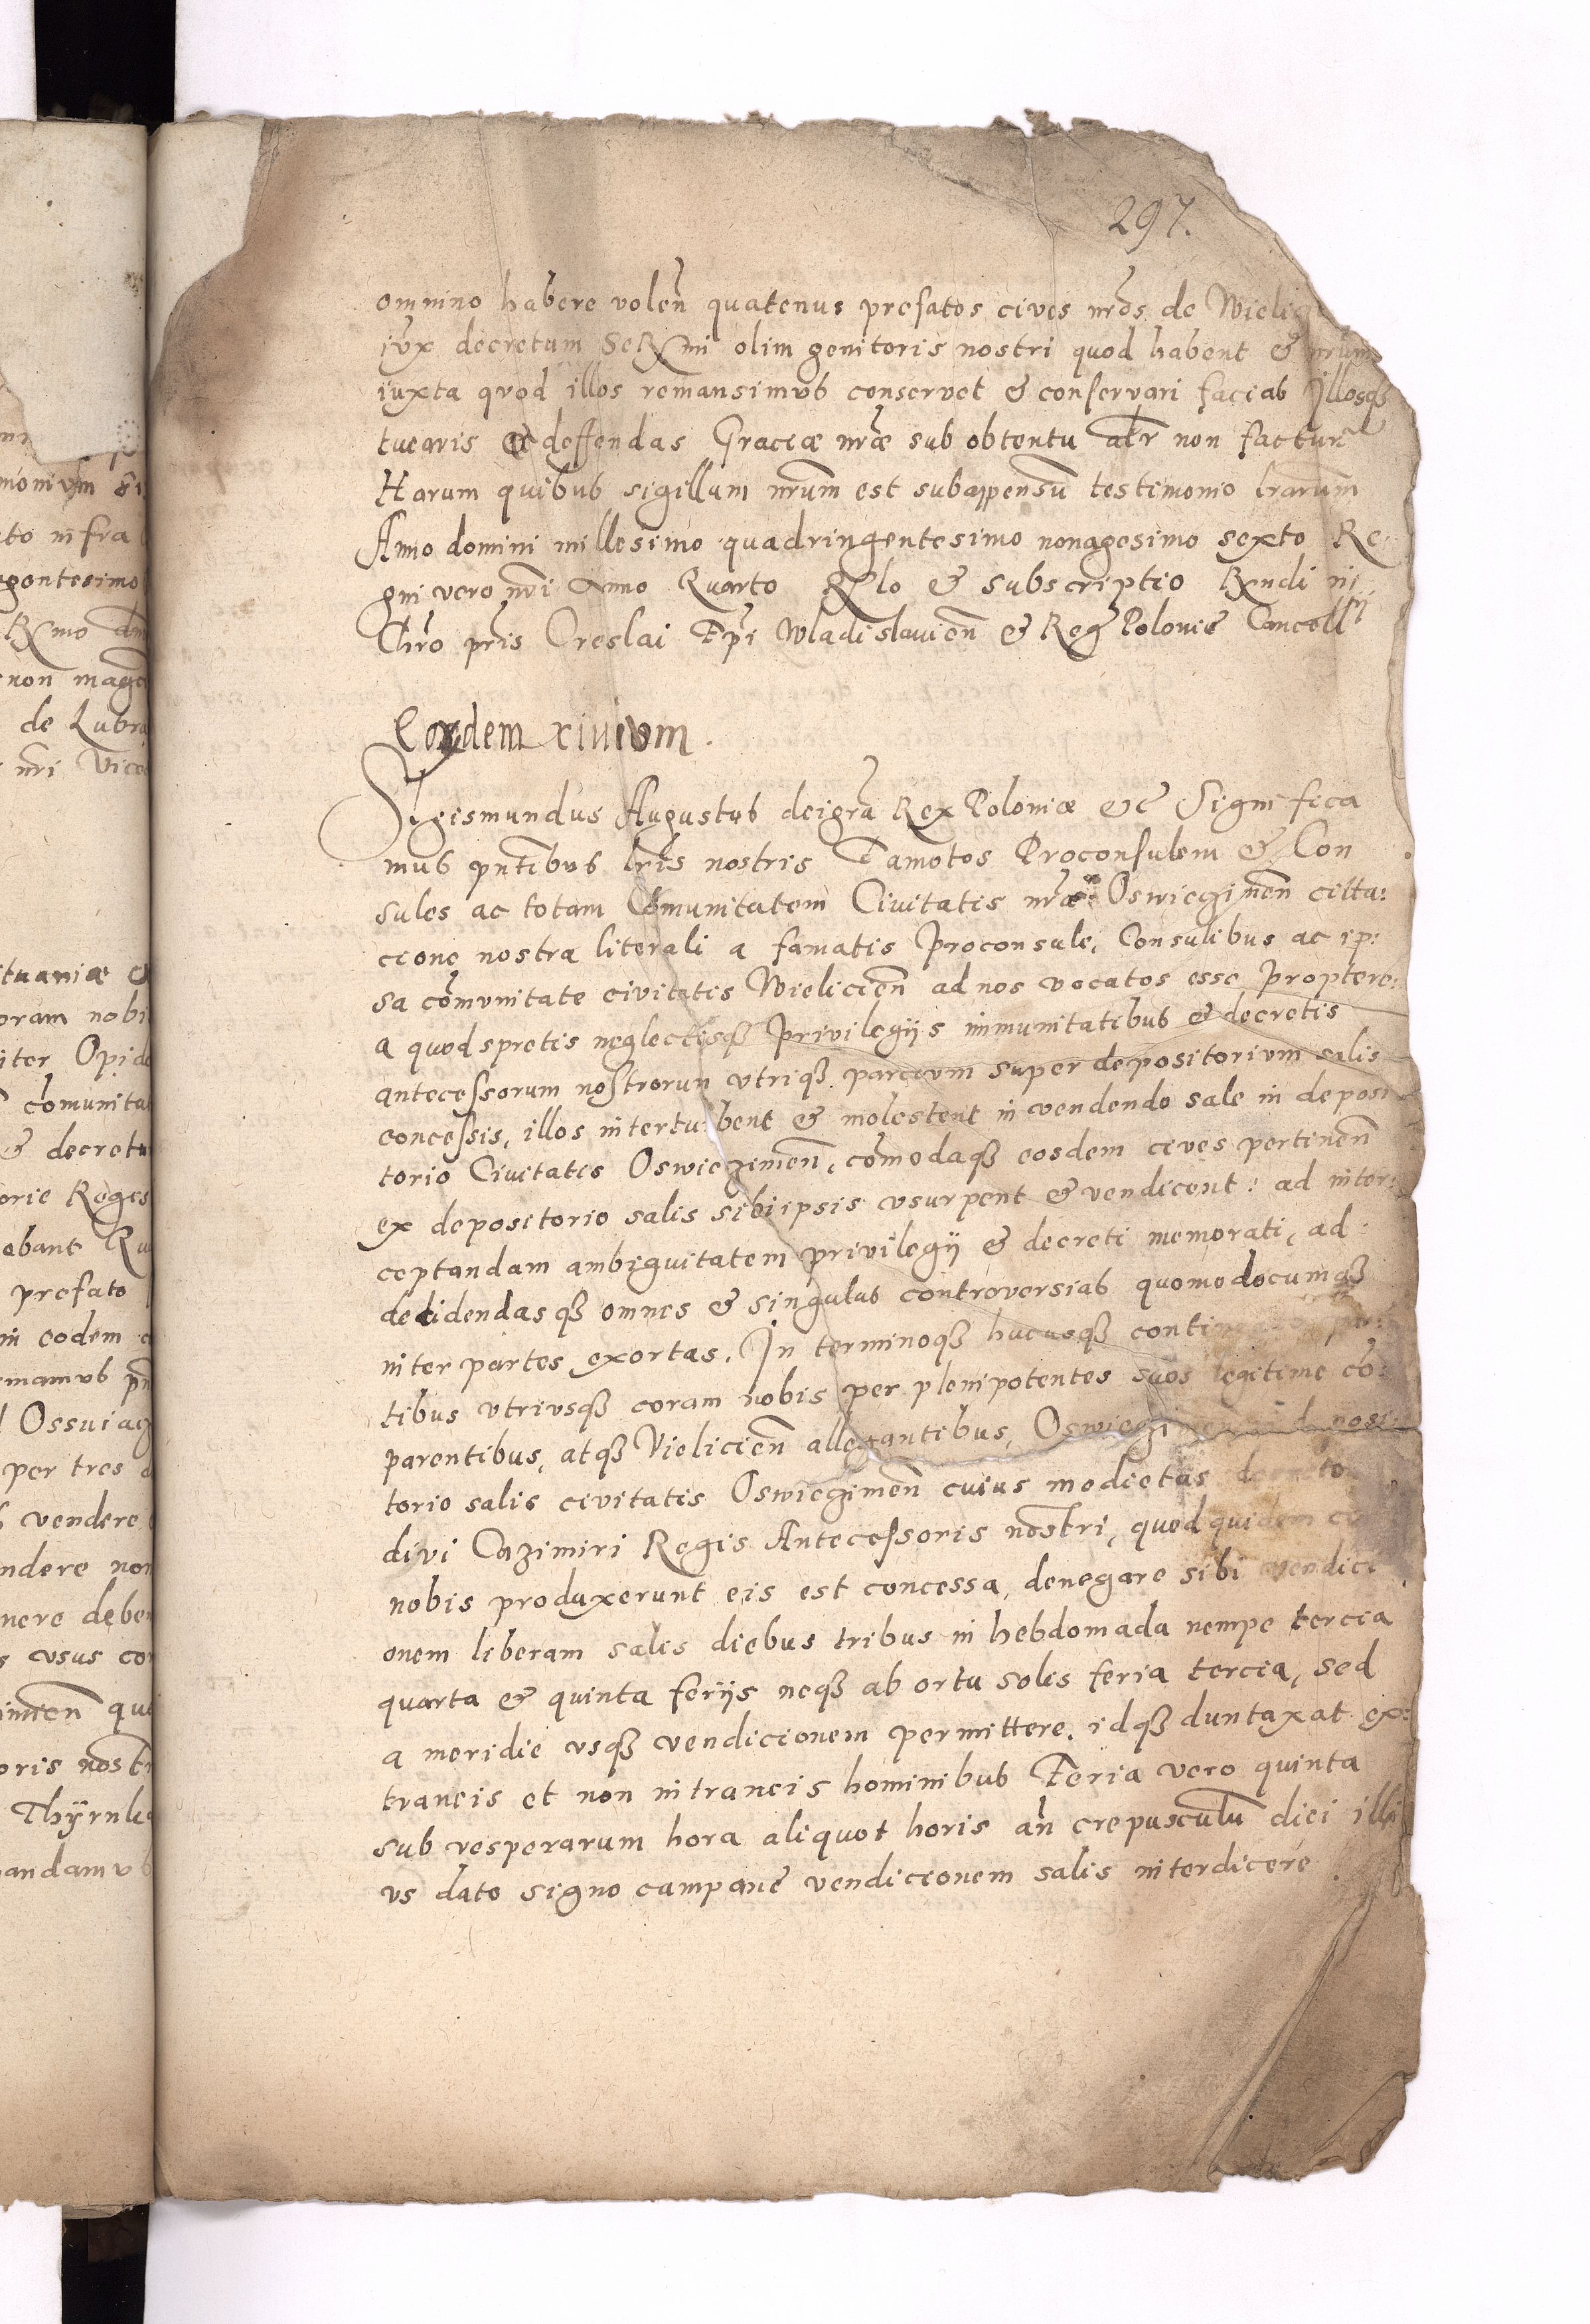 297.
omnino habere volen̄ quatenus prefatos cives nr̄os de Wielicz
iux decretum Serx̄mi olim genitoris nostri quod habent & nrum
iuxta quod illos remansimus conservet & conservari facias Illosqȝ
tuearis & deffendas Graciæ nr̄æ sub obtentu alr̄ non factur̄
Harum quibus sigillum nr̄um est subappensū testimonio lrarum
Anno domini millesimo quadringentesimo nonagesimo sexto Re
gni vero nr̄i Anno Quarto Rx̄lo & subscriptio Rx̄ndi in
Chr̄o pr̄is Creslai Ep̄i Wladislavien̄ & Reg Polonie Cancell
Eordem xiuium.
Sigismundus Augustus dei gr̄a Rex Poloniæ etc Significa
mus pn̄tibus lr̄is nostris Famotos Proconsulem & Con
sules ac totam Com̄unitatem Civitatis nr̄æ Oswieczimen̄ citta:
cione nostra literali a famatis Proconsule, Consulibus ac ip:
sa com̄unitate civitatis Wielicien̄ ad nos vocatos esse proptere:
a quod spretis neglectisqȝ privilegijs immunitatibus & decretis
antecessorum nostrorun utriqȝ parcium super depositorium salis
concessis, illos interturbent & molestent in vendendo sale in deposi
torio Civitatis Oswieczimen̄, com̄odaqȝ eosdem cives pertinen̄
ex depositorio salis sibi ipsis usurpent & vendicent: ad inter:
ceptandam ambiguitatem privilegij & decreti memorati, ad
decidendasqȝ omnes & singulas controversias quomodocumqȝ
inter partes exortas. In terminoqȝ hucusqȝ par:
tibus utriusqȝ coram nobis per plenipotentes suos legitime cō:
parentibus, atqȝ Vielicien̄ allegantibus,
torio salis civitatis Oswieczimen̄ cuius medietas decreto
divi Cazimiri Regis Antecessoris nostri, quod quidem co
nobis produxerunt eis est concessa, denegare sibi vendici
onem liberam salis diebus tribus in hebdomada nempe tercia
quarta & quinta ferijs neqȝ ab ortu solis feria tercia, sed
a meridie usqȝ vendicionem permittere. idqȝ duntaxat ex:
traneis et non intraneis hominibus Feria vero quinta
sub vesperarum hora aliquot horis an̄ crepusculum̄ diei illi
us dato signo campane vendicionem salis interdicere